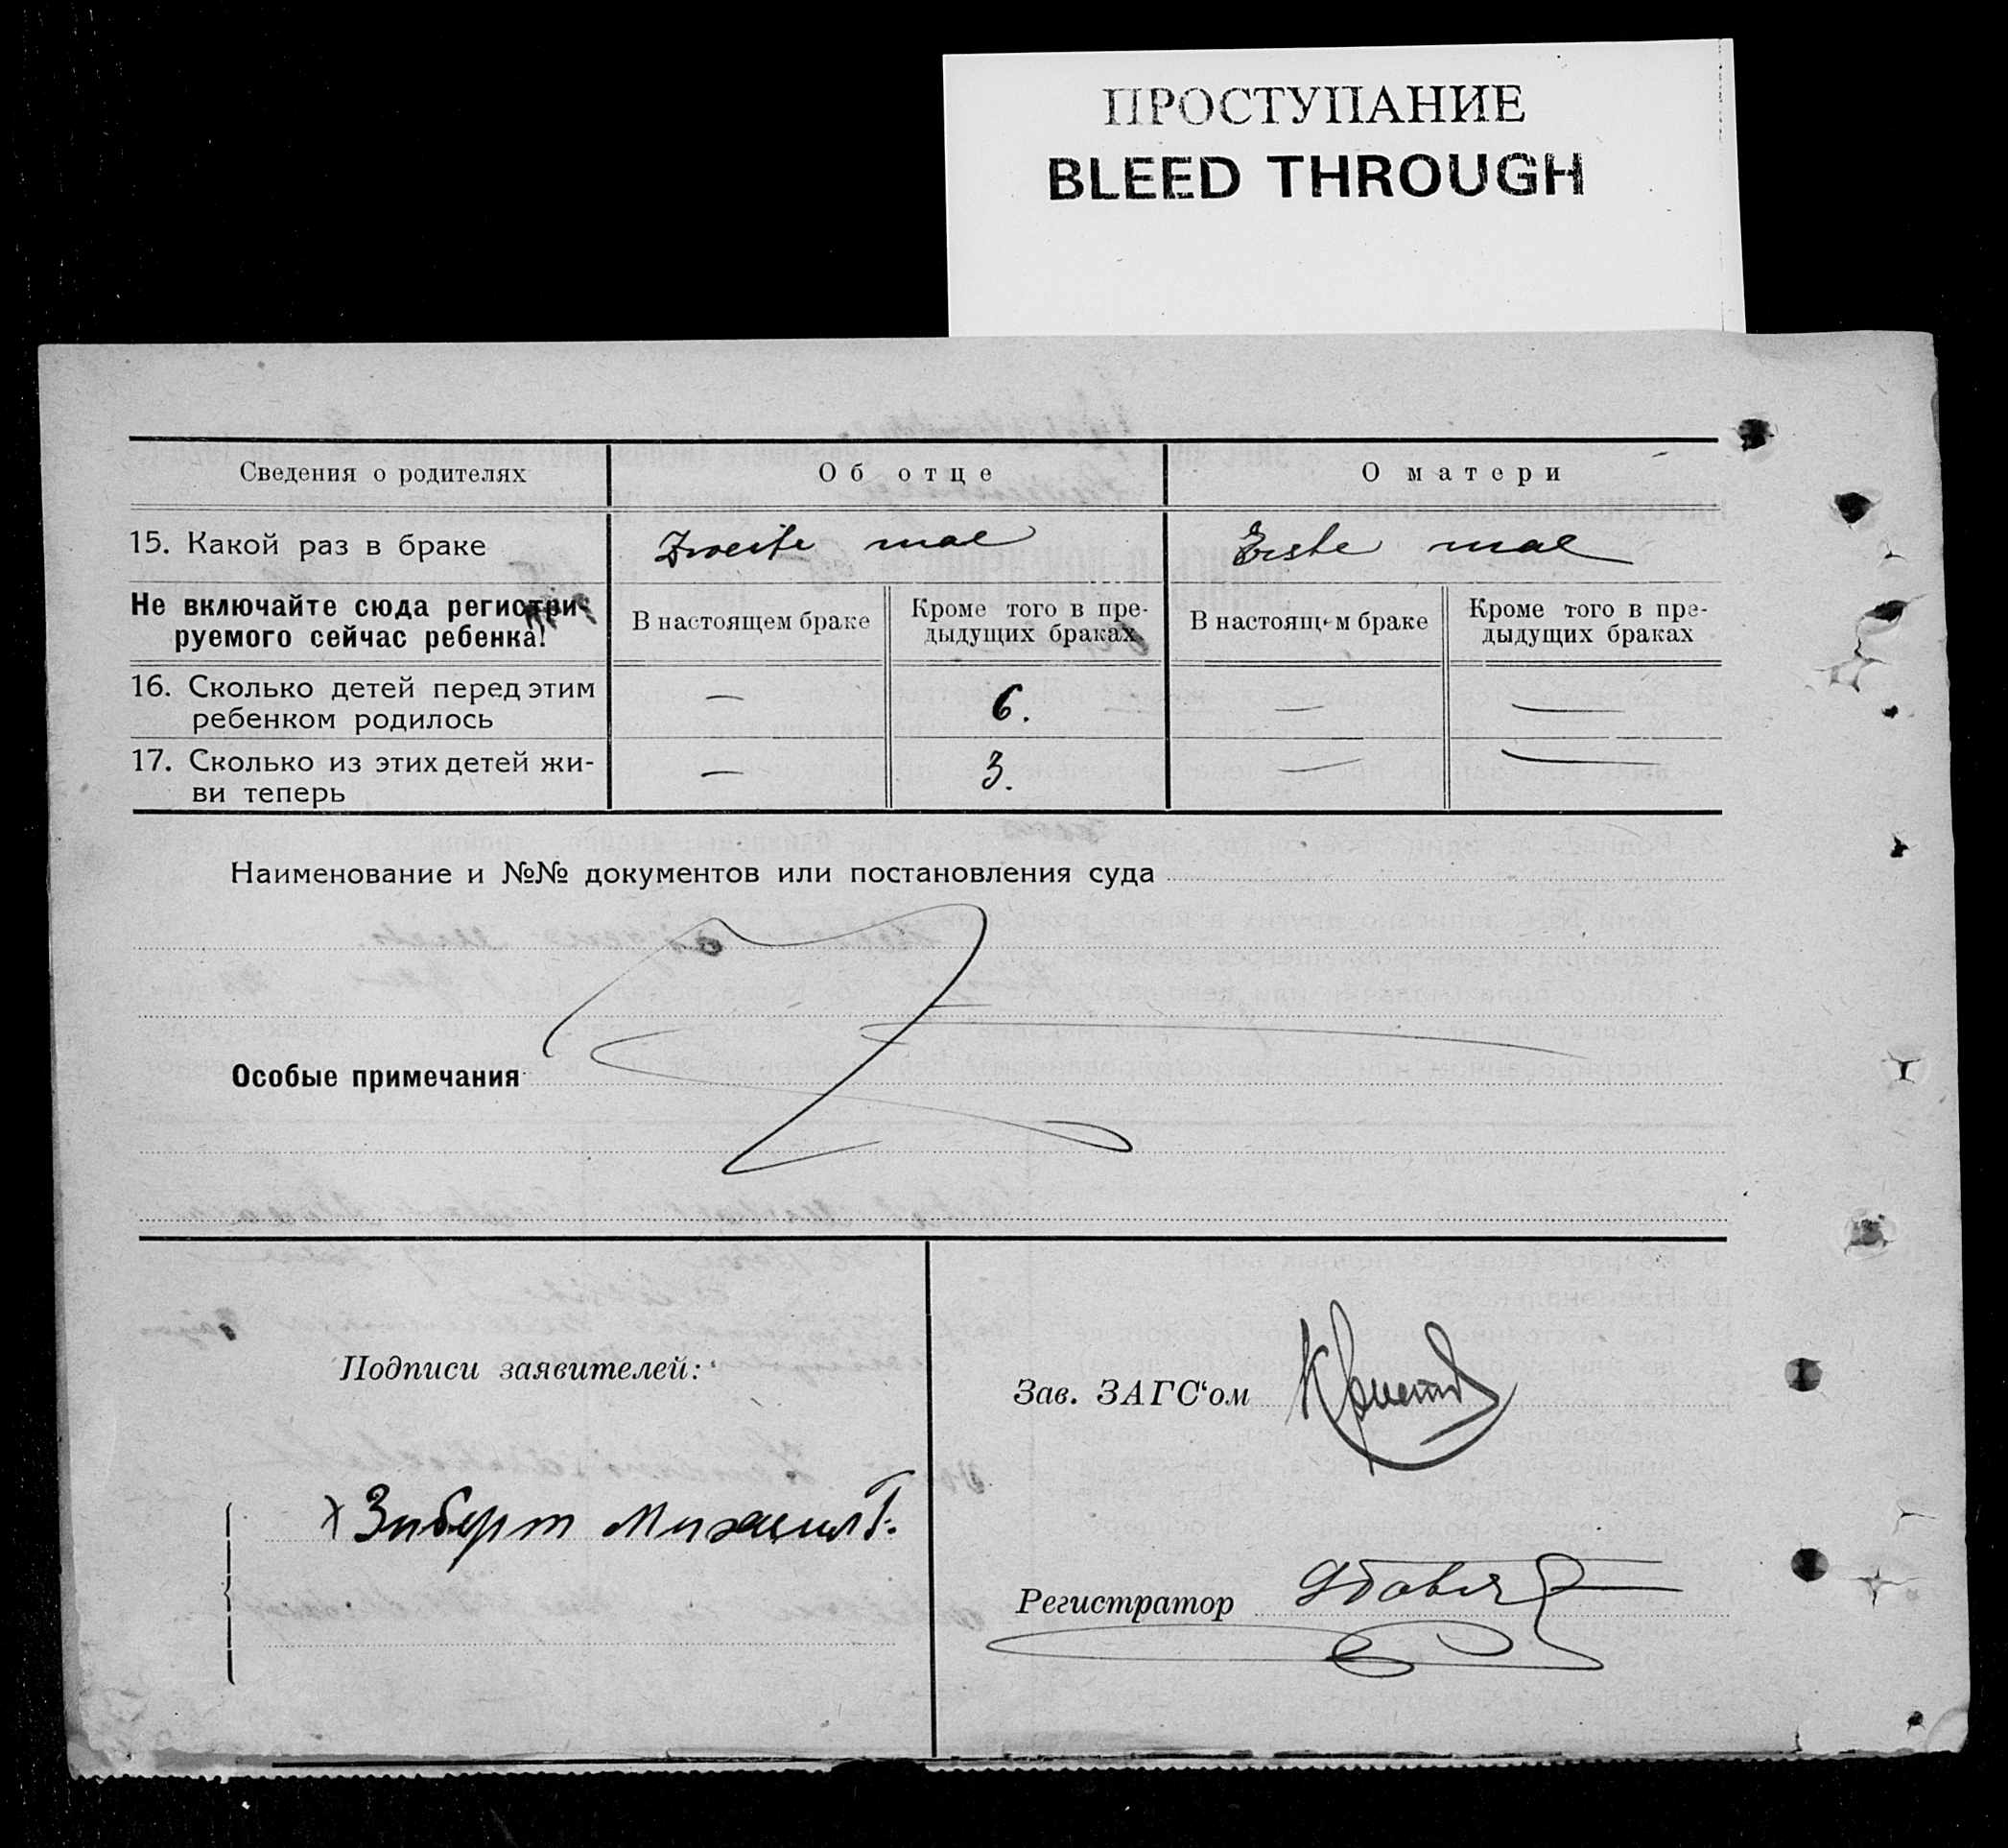 ПРОСТУПАНИЕ
BLEED THROUGH
Сведения о родителях
Об отце
О матери
15. Какой раз в браке
Zweite mal
Erste mal
Не включайте сюда регистри-
руемого сейчас ребенка!
В настоящем браке
Кроме того в пре-
дыдущих браках
В настоящем браке
Кроме того в пре-
дыдущих браках
16. Сколько детей перед этим
ребенком родилось
—
6.
—
—
17. Сколько из этих детей жи-
ви теперь
—
3.
—
—
Наименование и №№ документов или постановления суда
Особые примечания
Подписи заявителей:
Зав. ЗАГС‘ом
х Зиберт Михаил Г.
Регистратор